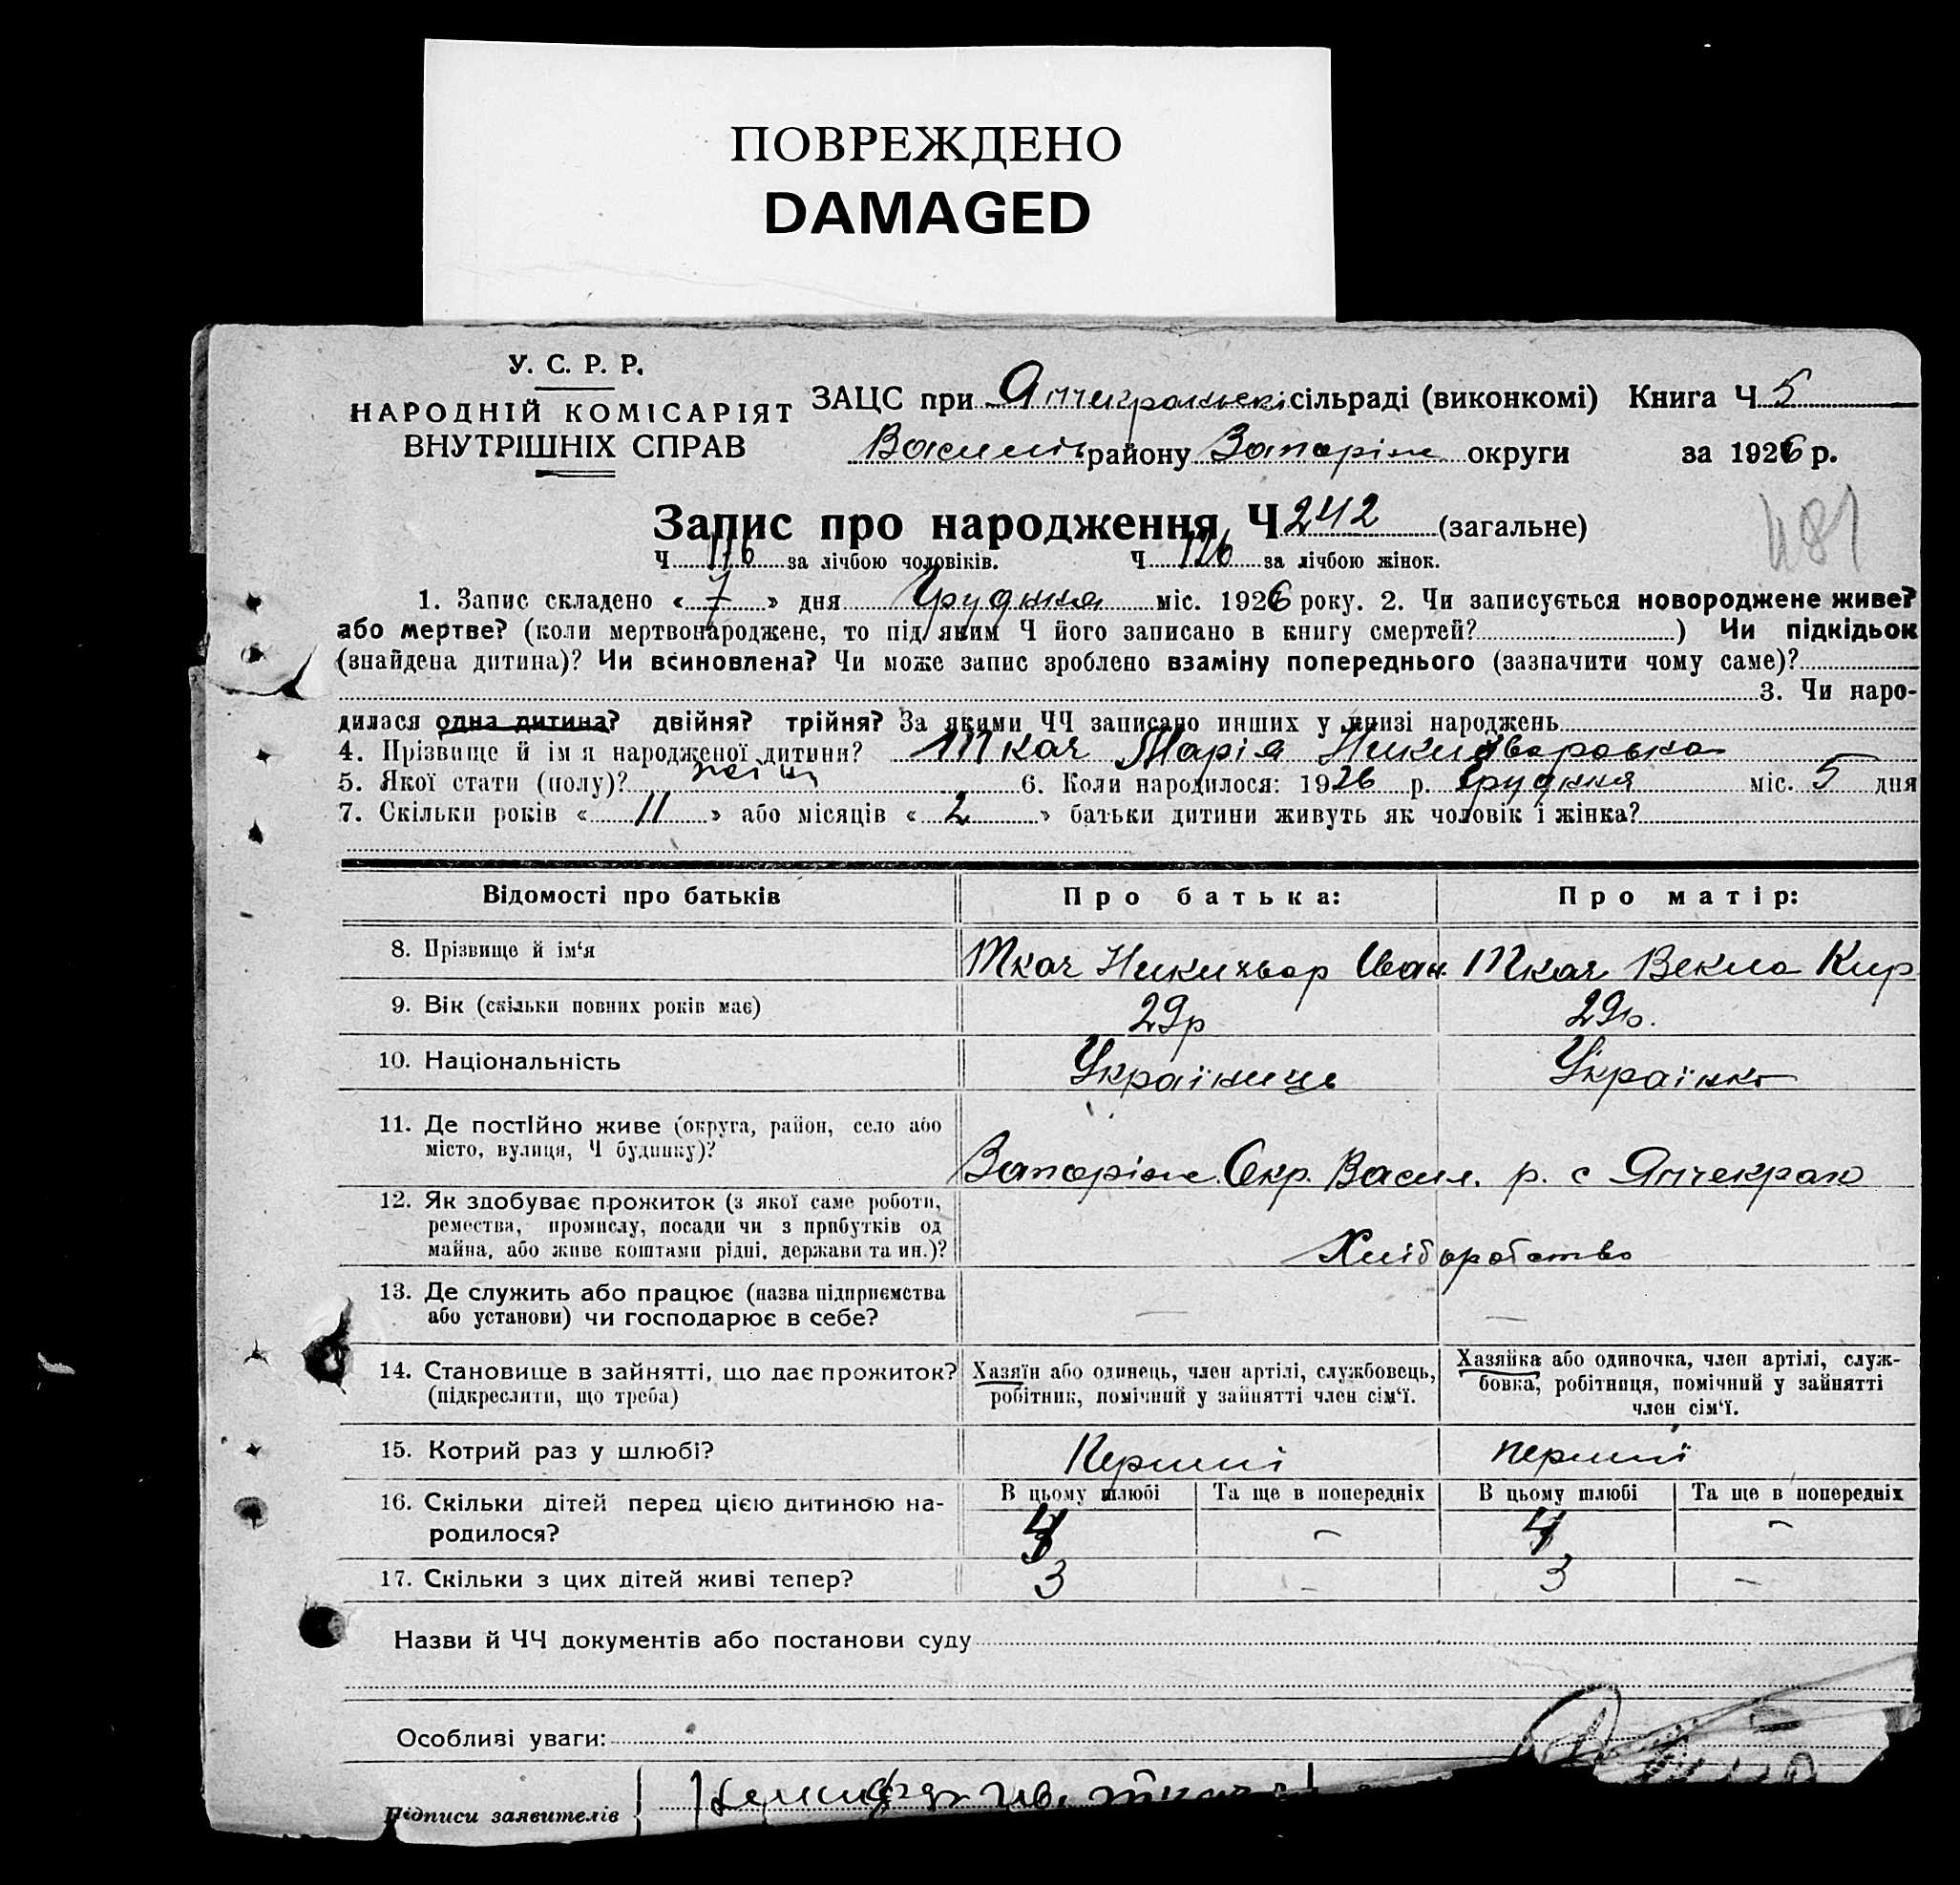 ПОВРЕЖДЕНО
DAMAGED
У. С. Р. Р.
НАРОДНІЙ КОМІСАРІЯТ
ВНУТРІШНІХ СПРАВ
ЗАЦС при Япчекракській сільраді (виконкомі) Книга Ч 5
Василів району Запоріж округи за 1926 р.
481
Запис про народження Ч 242 (загальне)
Ч 116 за лічбою чоловіків. Ч 126 за лічбою жінок.
1. Запис складено « 7 » дня Грудня міс. 1926 року. 2. Чи записується новороджене живе?
або мертве? (коли мертвонароджене, то під яким Ч його записано в книгу смертей? ) Чи підкідьок
(знайдена дитина)? Чи всиновлена? Чи може запис зроблено взаміну попереднього (зазначити чому саме)?
3. Чи наро-
дилася одна дитина? двійня? трійня? За якими ЧЧ записано инших у книзі народжень
4. Прізвище й ім я народженої дитини? Ткач Марія Никихворовна
5. Якої стати (полу)? жіи 6. Коли народилося: 1926 р. Грудня міс. 5 дня
7. Скільки років « 11 » або місяців « 2 » батьки дитини живуть як чоловік і жінка?
Відомості про батьків Про батька: Про матір:
8. Прізвище й ім‘я Ткач Никихвор Иван. Ткач Векла Кир
9. Вік (скільки повних років має) 29р 29р.
10. Національність Українець Українка
11. Де постійно живе (округа, район, село або
місто, вулиця, Ч будинку)?
Запоріж. Окр. Васил. р. с Япчекрак
12. Як здобуває прожиток (з якої саме роботи,
ремества, промислу, посади чи з прибутків од
майна, або живе коштами рідні, держави та ин.)?
Хліборобство
13. Де служить або працює (назва підприємства
або установи) чи господарює в себе? — —
14. Становище в зайнятті, що дає прожиток?
(підкреслити, що треба)
Хазяїн або одинець, член артілі, службовець,
робітник, помічний у зайнятті член сім‘ї.
Хазяйка або одиночка, член артілі, служ-
бовка, робітниця, помічний у зайнятті
член сім‘ї.
15. Котрий раз у шлюбі? Перший перший
16. Скільки дітей перед цією дитиною на-
родилося?
В цьому шлюбі Та ще в попередніх В цьому шлюбі Та ще в попередніх
4 – 4 –
17. Скільки з цих дітей живі тепер? 3 – 3 –
Назви й ЧЧ документів або постанови суду
Особливі уваги:
Підписи заявителів